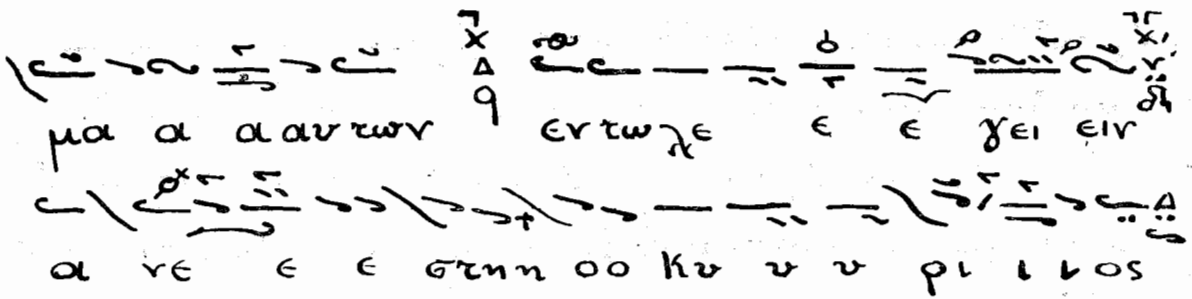 μα α α αυ των εν τω λε ε ε γει ειν
α νε ε ε στηη οο κυ υ υ ρι ι ι ος